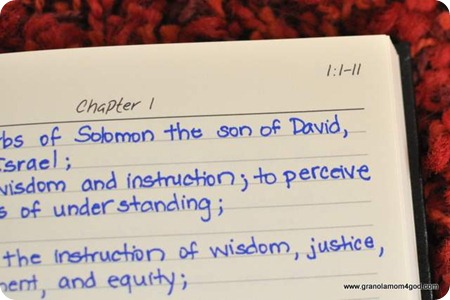 1:1-11
Chapter 1
bs of Solomon the son of David,
Israel;
wisdom and instruction; to perceive
s of understanding;
the instruction of wisdom, justice,
ment, and equity;
www.granolamom4god.com